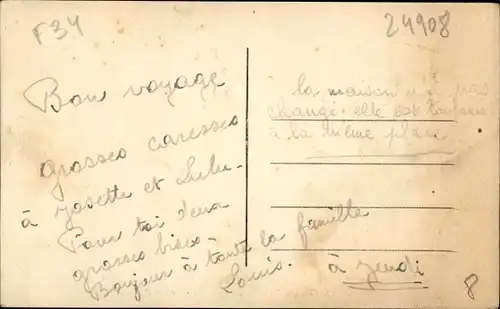 F34
24908
Bon voyage
grosses caresses
à Josette et Lulu.
Pour toi deux
grosses bises
Bonjour à toute la famille
Louis.
à jeudi
la maison n'a pas
changé. elle est toujours
à la même place
8